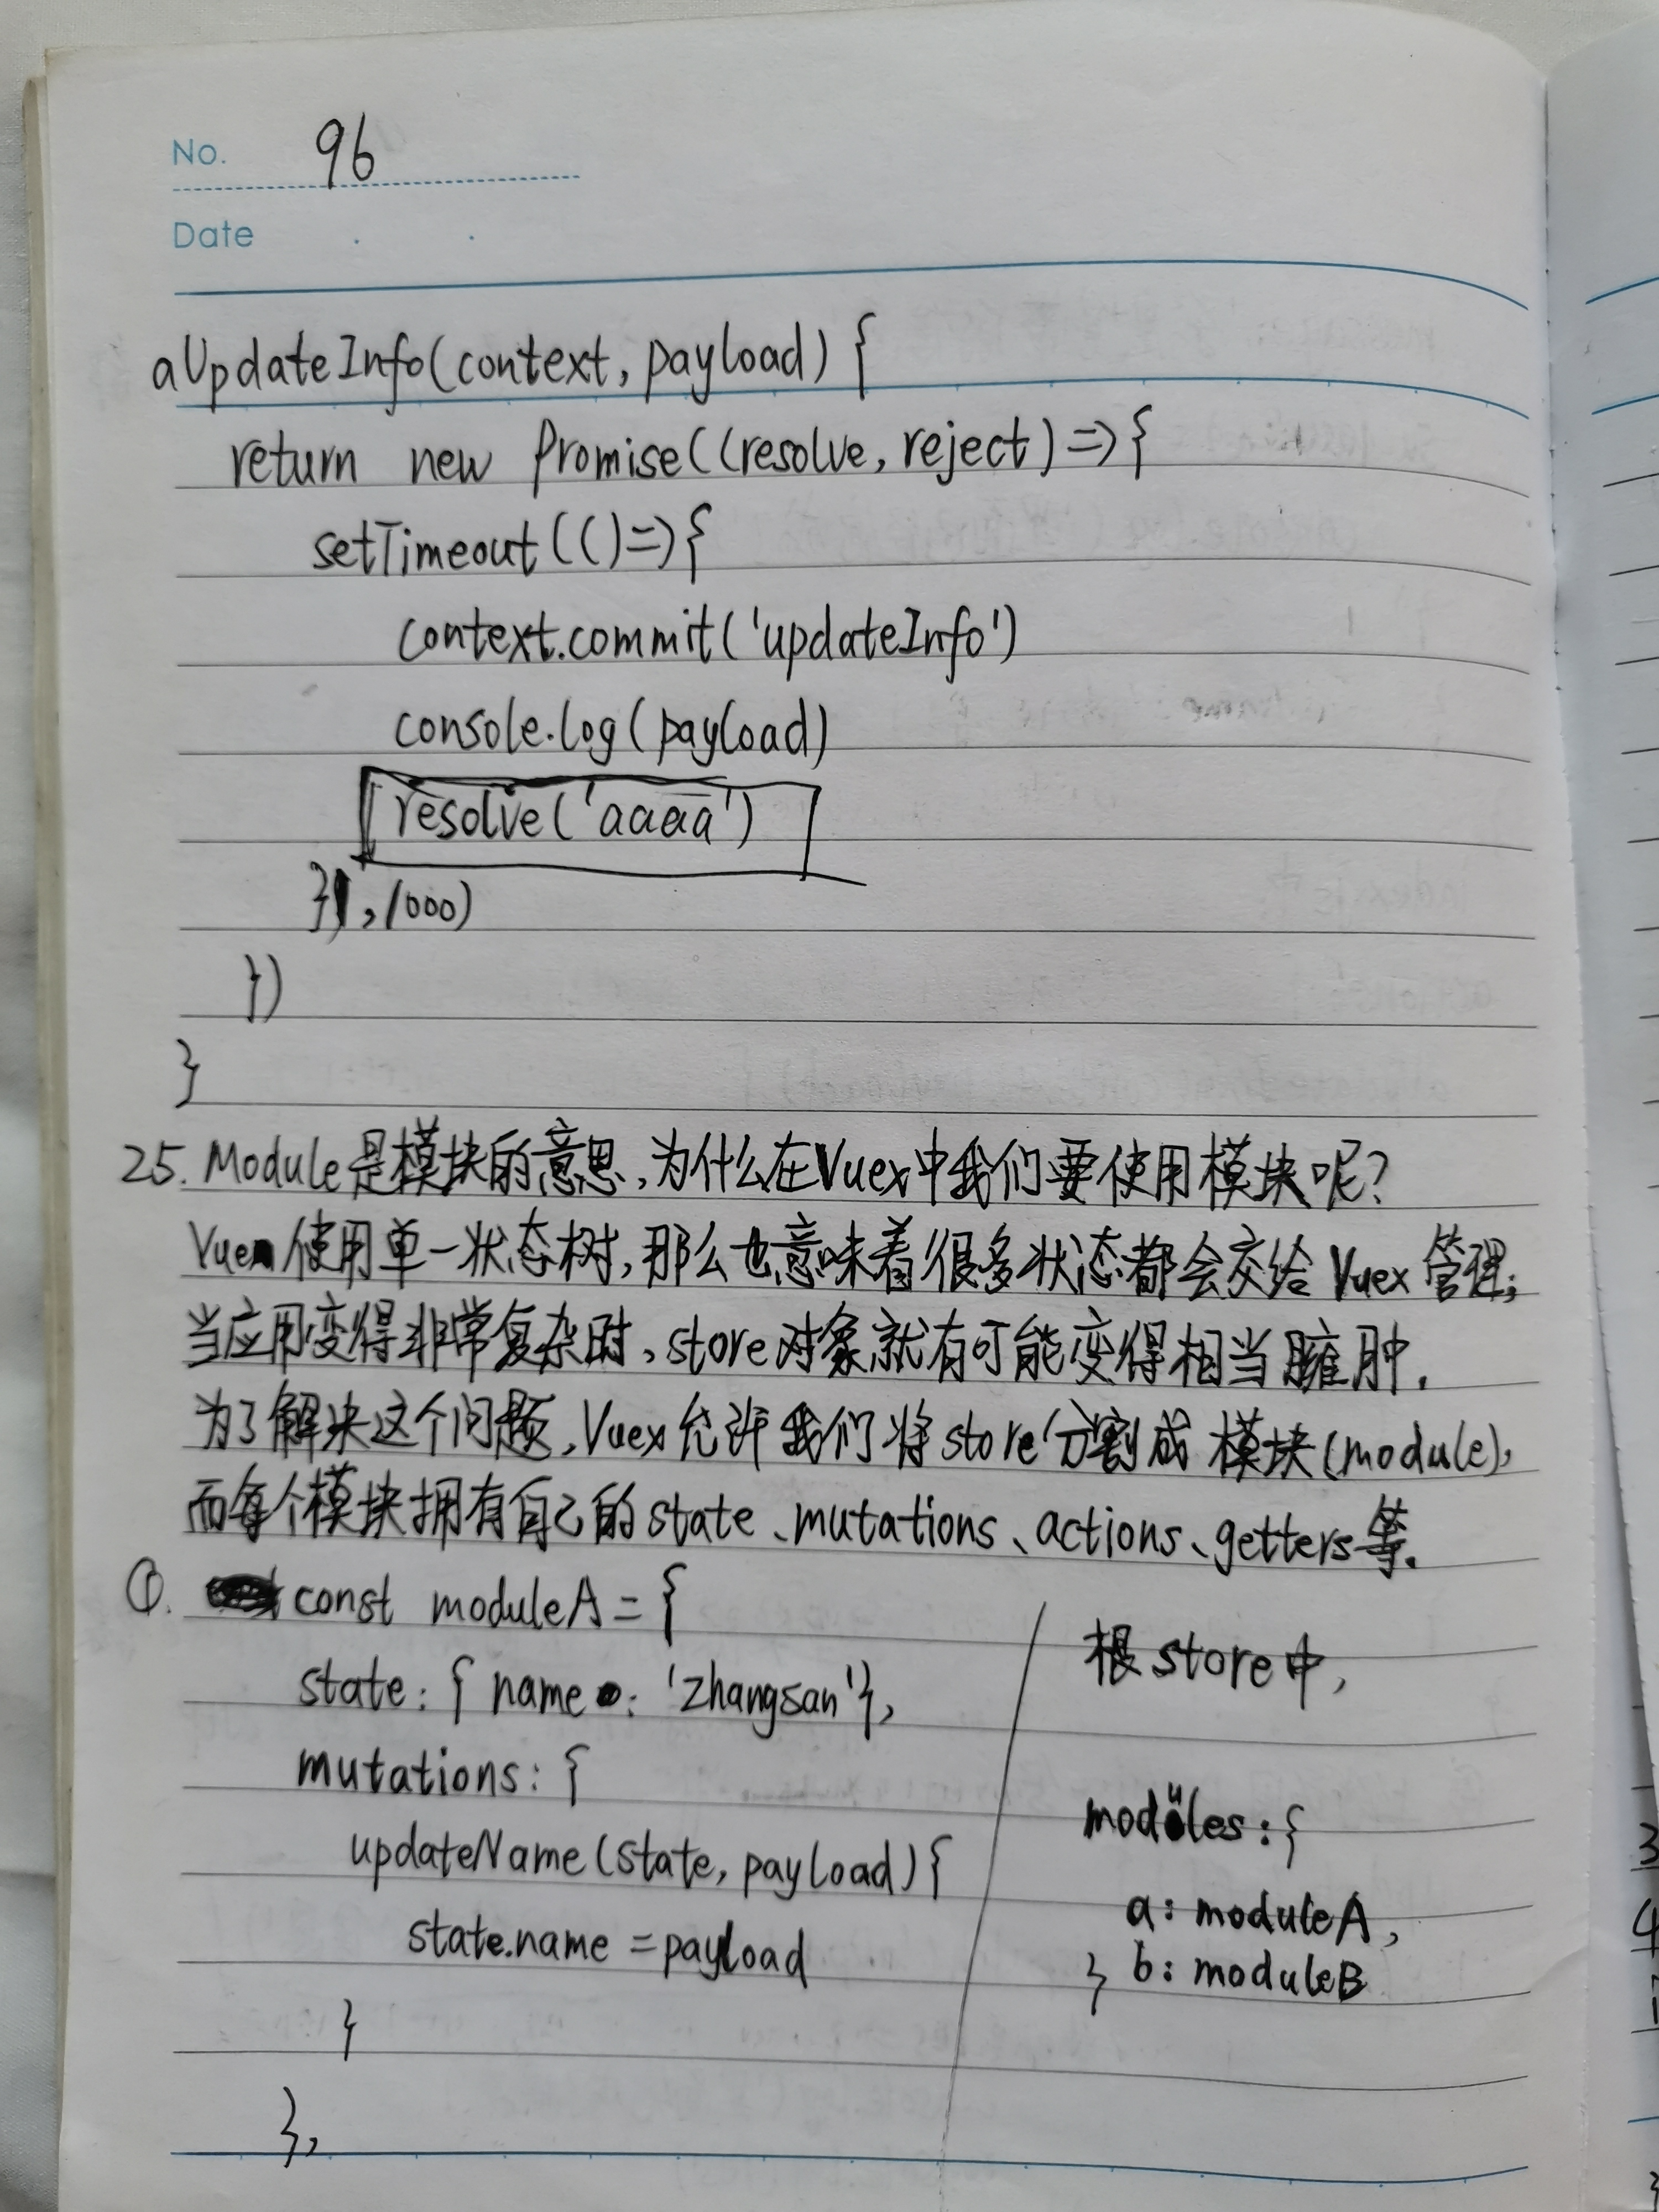 No. 96
Date
aUpdateInfo(context, payload) {
return new Promise((resolve, reject) => {
setTimeout(() => {
context.commit('updateInfo')
console.log(payload)
resolve('aaaa')
}, 1000)
})
}
25. Module是模块的意思,为什么在Vuex中我们要使用模块呢?
Vuex使用单一状态树,那么也意味着很多状态都会交给Vuex管理;
当应用变得非常复杂时,store对象就有可能变得相当臃肿.
为了解决这个问题,Vuex允许我们将store分割成模块(module),
而每个模块拥有自己的state、mutations、actions、getters等.
①. const moduleA = {
state: { name: 'zhangsan'},
mutations: {
updateName(state, payload) {
state.name = payload
}
},
根store中,
modules: {
a: moduleA,
} b: moduleB
3
4